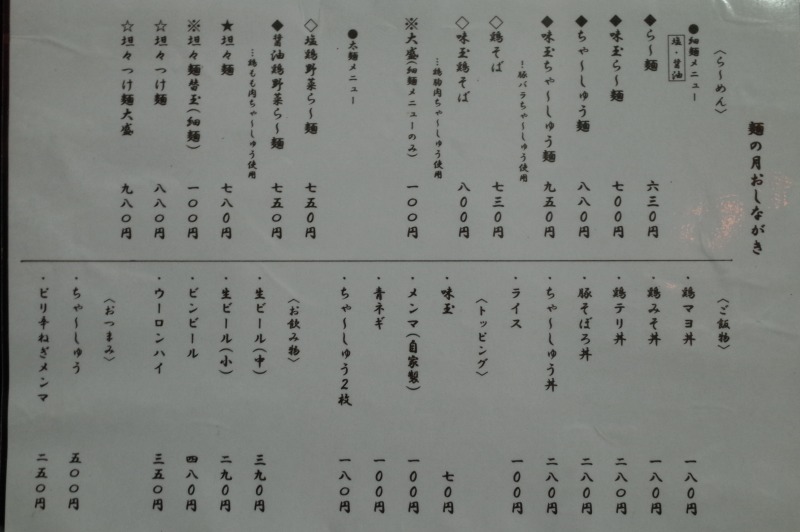 麺の月おしながき
〈ら〜めん〉
●細麺メニュー
塩・醤油
◆ら〜麺 六三〇円
◆味玉ら〜麺 七〇〇円
◆ちゃ〜しゅう麺 八八〇円
◆味玉ちゃ〜しゅう麺 九五〇円
…豚バラちゃ〜しゅう使用
◇鶏そば 七三〇円
◇味玉鶏そば 八〇〇円
…鶏胸肉ちゃ〜しゅう使用
※大盛(細麺メニューのみ) 一〇〇円
●太麺メニュー
◇塩鶏野菜ら〜麺 七五〇円
◆醤油鶏野菜ら〜麺 七五〇円
…鶏もも肉ちゃ〜しゅう使用
★坦々麺 七八〇円
※坦々麺替玉(細麺) 一〇〇円
☆坦々つけ麺 八八〇円
☆坦々つけ麺大盛 九八〇円
〈ご飯物〉
・鶏マヨ丼 一八〇円
・鶏みそ丼 一八〇円
・鶏テリ丼 二八〇円
・豚そぼろ丼 二八〇円
・ちゃ〜しゅう丼 二八〇円
・ライス 一〇〇円
〈トッピング〉
・味玉 七〇円
・メンマ(自家製) 一〇〇円
・青ネギ 一〇〇円
・ちゃ〜しゅう2枚 一八〇円
〈お飲み物〉
・生ビール(中) 三九〇円
・生ビール(小) 二九〇円
・ビンビール 四八〇円
・ウーロンハイ 三五〇円
〈おつまみ〉
・ちゃ〜しゅう 五〇〇円
・ピリ辛ねぎメンマ 二五〇円